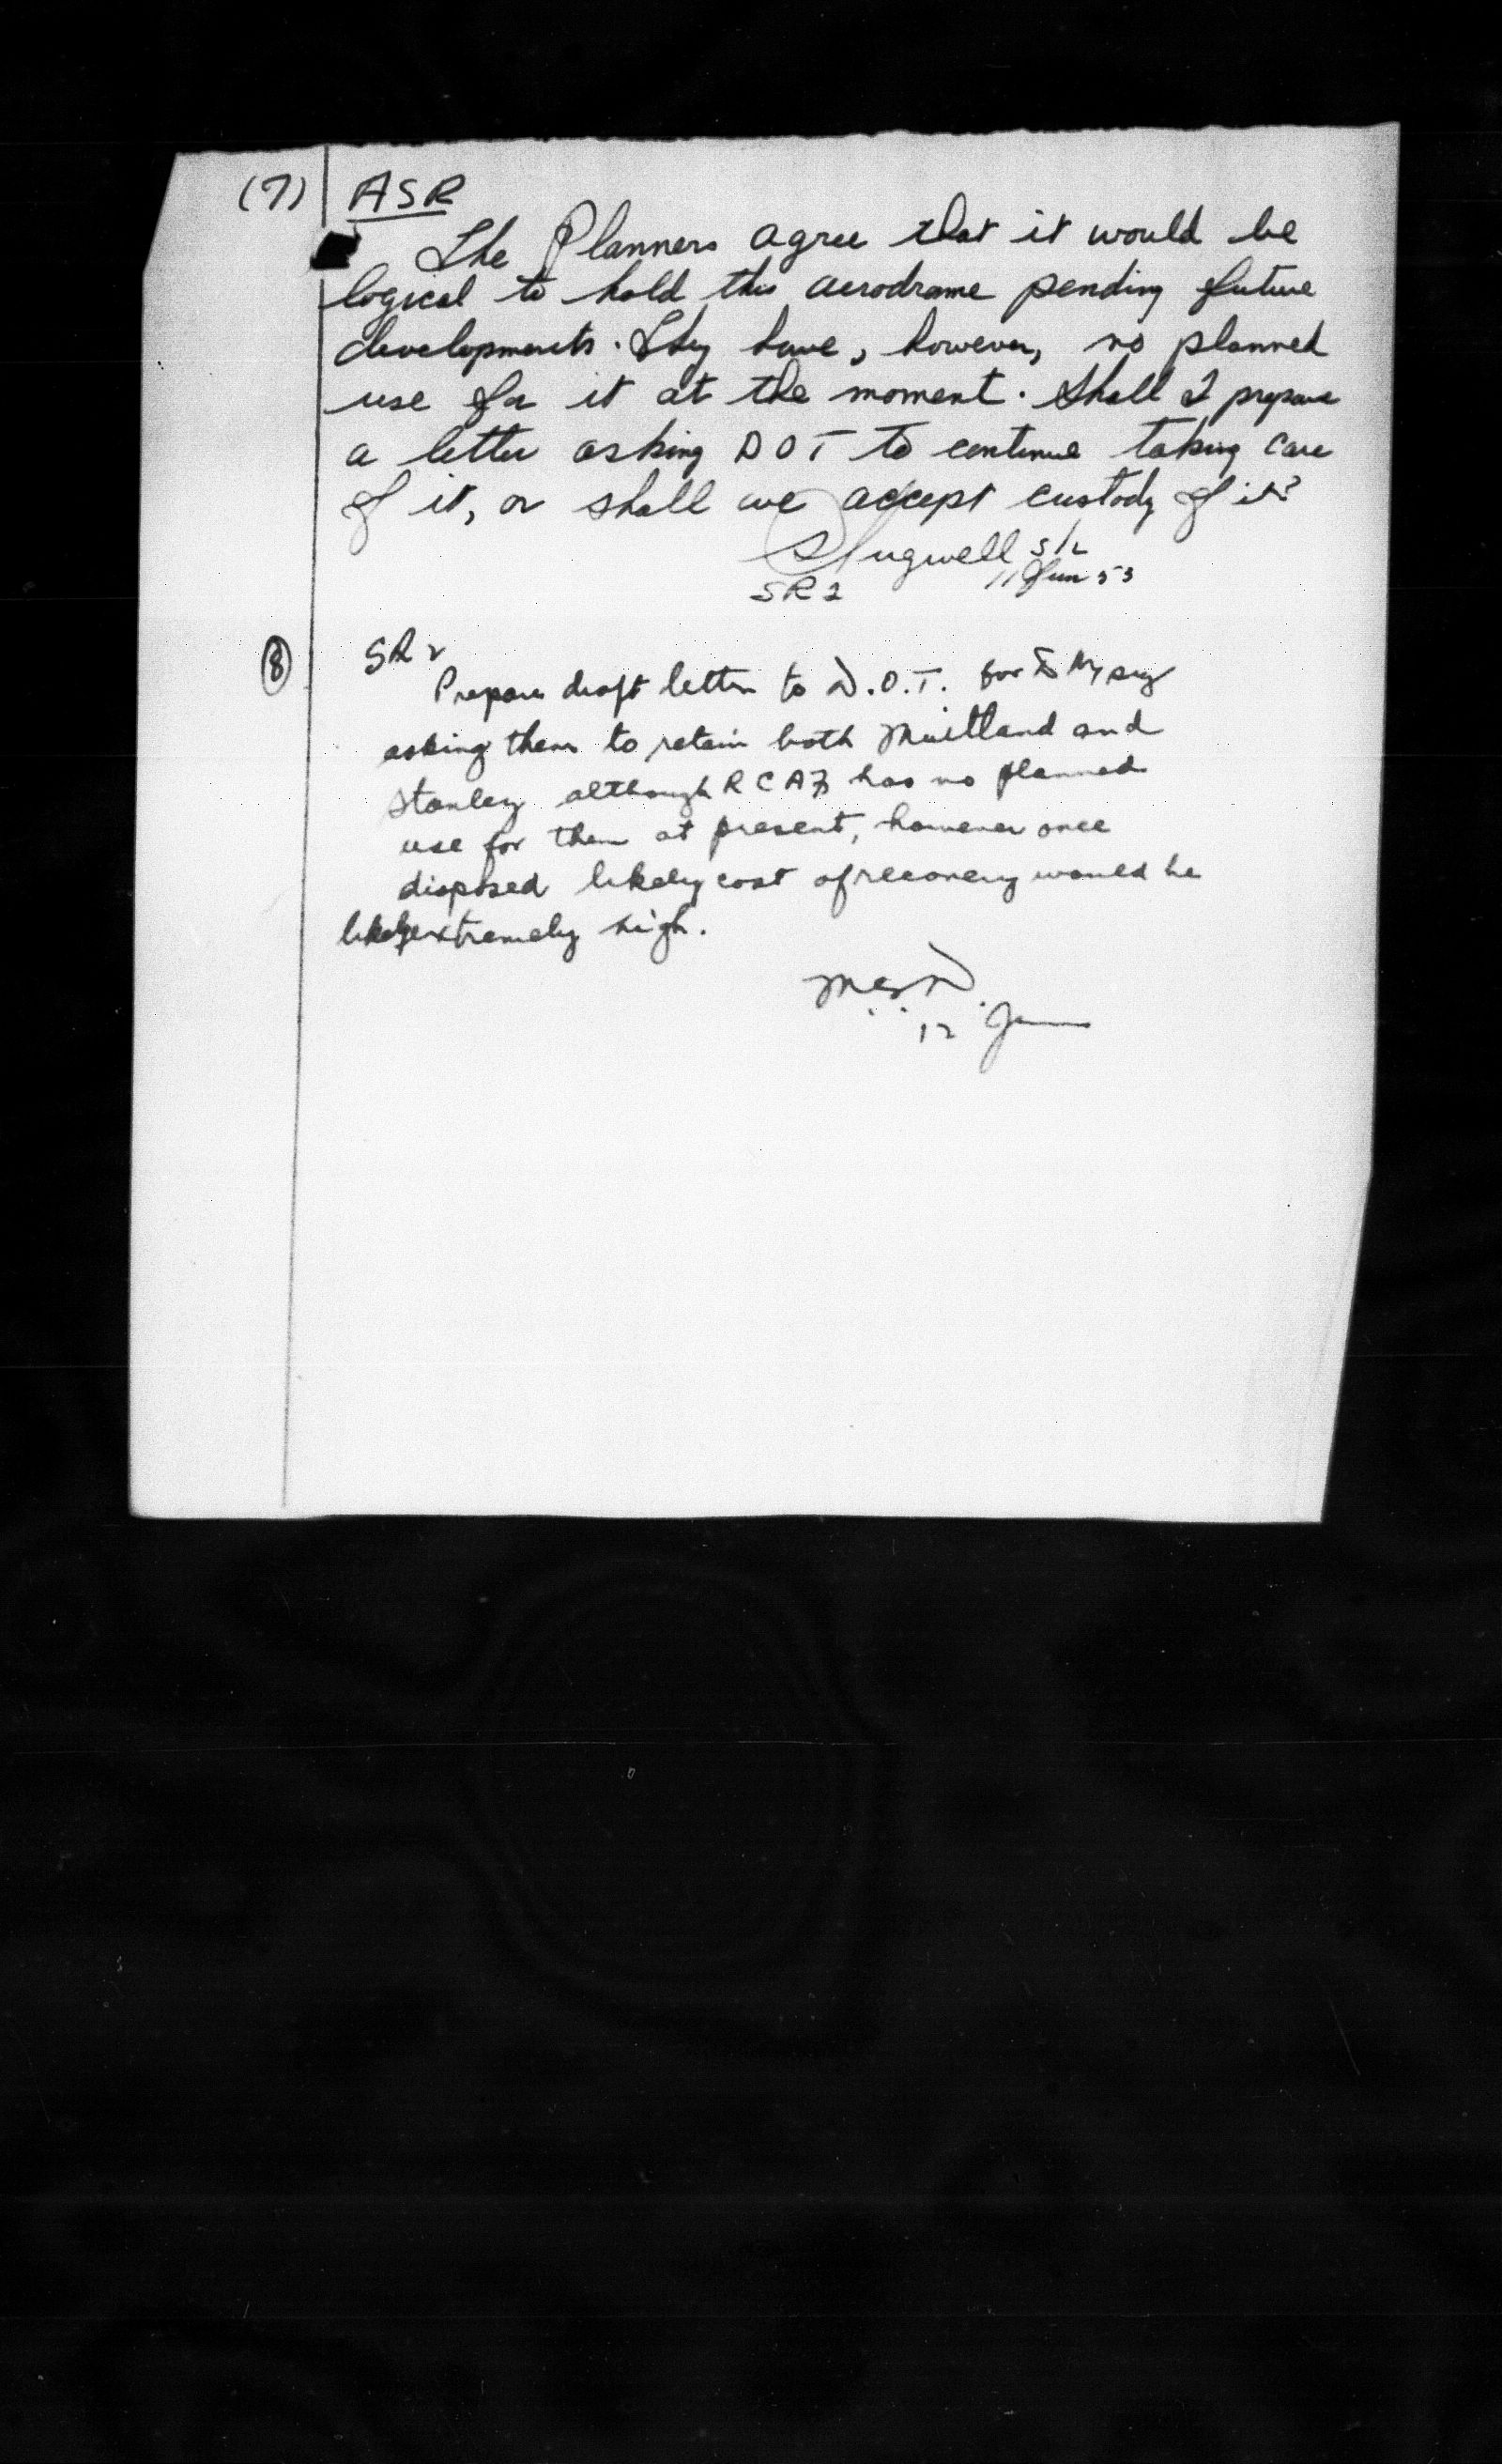 (7) ASR
The Planners agree that it would be
logical to hold this aerodrome pending future
developments. They have, however, no planned
use for it at the moment. Shall I prepare
a letter asking DOT to continue taking care
of it, or shall we accept custody of it?
S/L
SR2 11 Jun 53
(8) SR2
Prepare draft letter to D.O.T. for DM sig
asking them to retain both Maitland and
Stanley although RCAF has no planned
use for them at present, however once
disposed likely cost of recovery would be
likely extremely high.
12 June